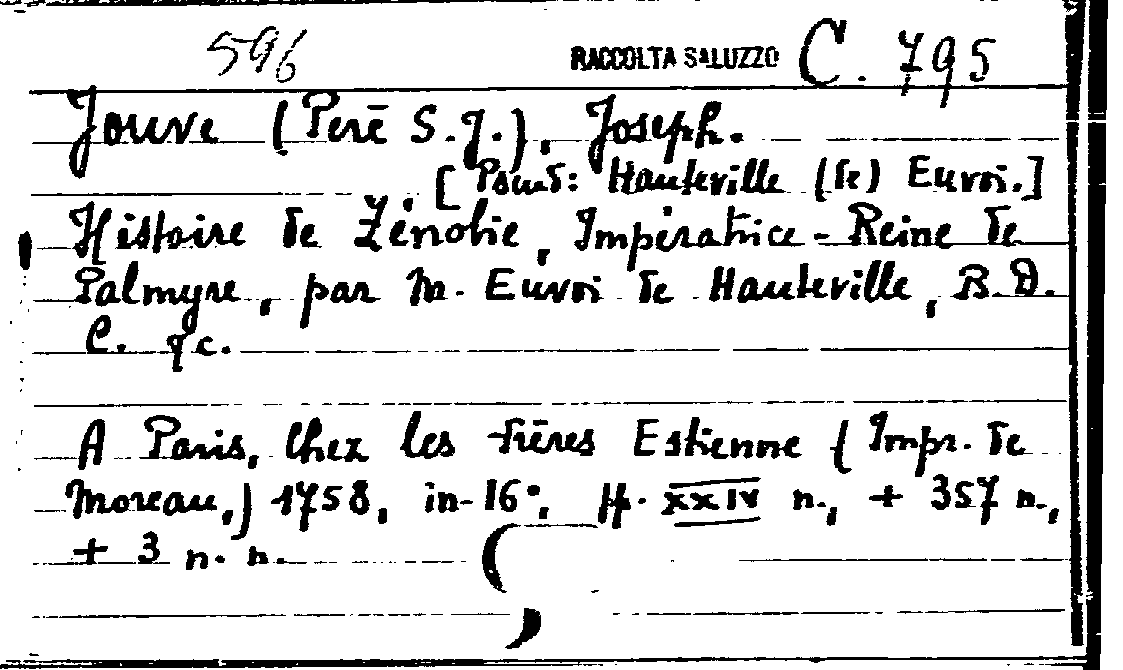 596 RACCOLTA SALUZZO C. 795
Jouve (Père S.J.), Joseph.
[Pseud: Hauteville (de) Euvoi.]
Histoire de Zénobie, Impératrice-Reine de
Palmyre, par M. Euvoi de Hauteville, B.D.
C. &c.
A Paris, Chez les frères Estienne (Impr. de
Moreau,) 1758, in-16°, pp. XXIV n., + 357 n.,
+ 3 n. n.